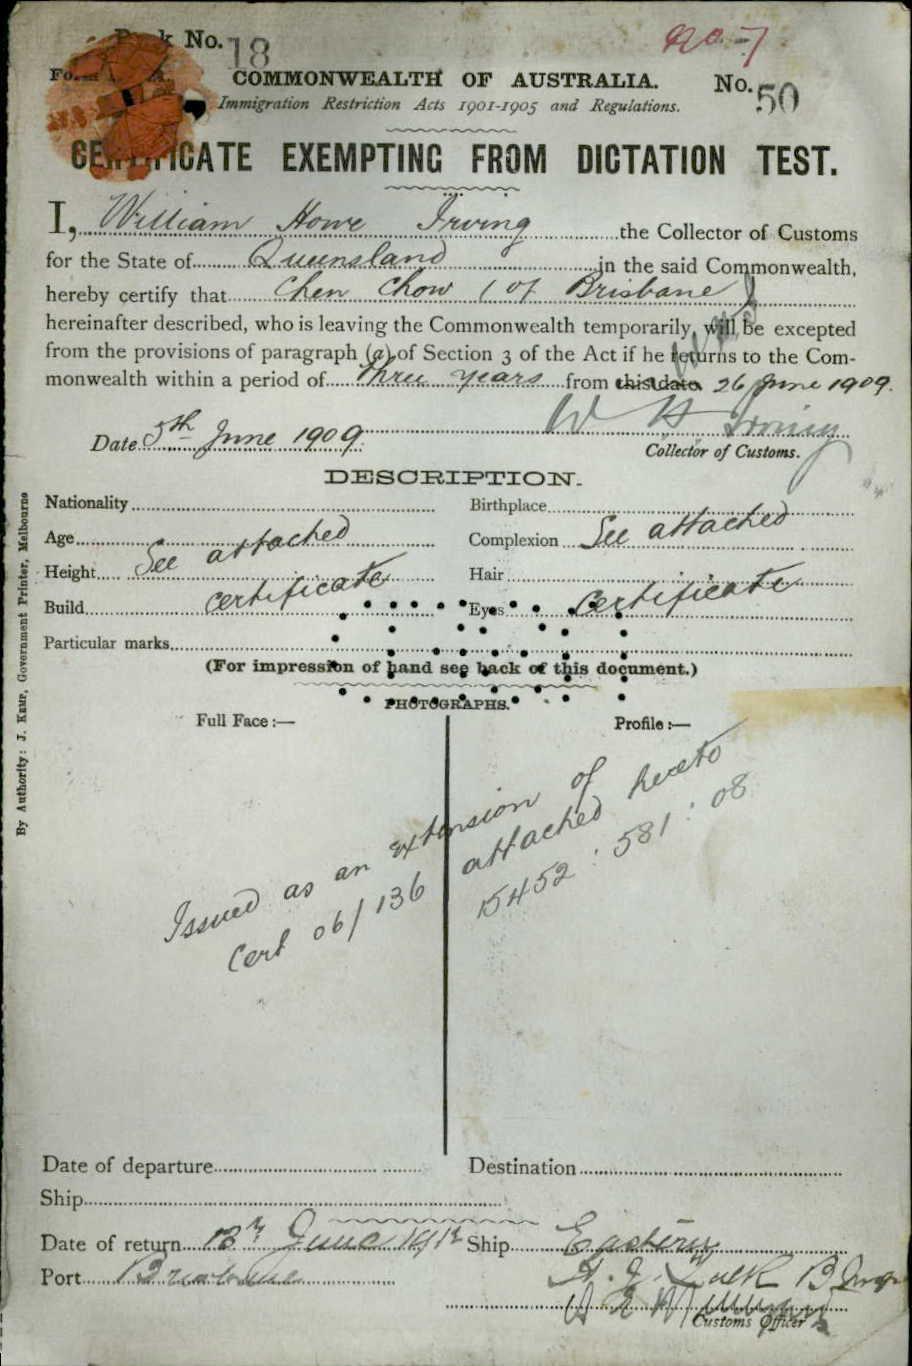 Book No. 18
No 7
Form
COMMONWEALTH OF AUSTRALIA. No. 50
Immigration Restriction Acts 1901-1905 and Regulations.
CERTIFICATE EXEMPTING FROM DICTATION TEST.
I, William Howe Irving the Collector of Customs
for the State of Queensland in the said Commonwealth,
hereby certify that Chen Chow (of Brisbane)
hereinafter described, who is leaving the Commonwealth temporarily, will be excepted
from the provisions of paragraph (a) of Section 3 of the Act if he returns to the Com-
monwealth within a period of three years from this date 26 June 1909.
W H Irving
Date 5th June 1909. Collector of Customs.
DESCRIPTION.
Nationality Birthplace
Age Complexion See attached
Height See attached Hair
Build certificate Eyes certificate
Particular marks
(For impression of hand see back of this document.)
PHOTOGRAPHS.
Full Face :— Profile :—
Issued as an extension of
Cert 06/136 attached hereto
15452 : 581 : 08
Date of departure Destination
Ship
Date of return 13th June 1912 Ship Eastern
Port Brisbane
Customs Officer
By Authority: J. Kemp, Government Printer, Melbourne